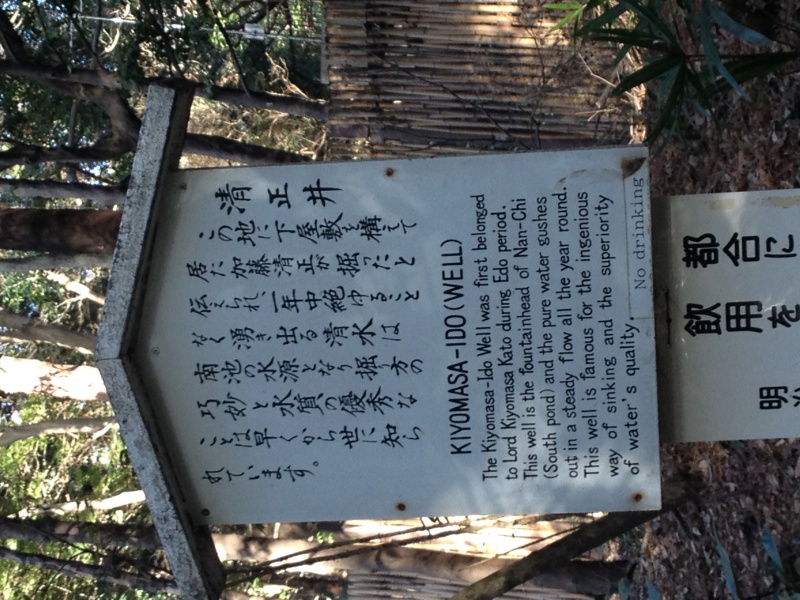 清正井
この地に下屋敷を構えて
居た加藤清正が掘ったと
伝えられ、一年中絶ゆること
なく湧き出る清水は
南池の水源となり掘り方の
巧妙と水質の優秀な
ことは早くから世に知ら
れています。
KIYOMASA-IDO (WELL)
The Kiyomasa-Ido Well was first belonged
to Lord Kiyomasa Kato during Edo period.
This well is the fountainhead of Nan-Chi
(South pond) and the pure water gushes
out in a steady flow all the year round.
This well is famous for the ingenious
way of sinking and the superiority
of water's quality.
No drinking
都合に
飲用を
明治